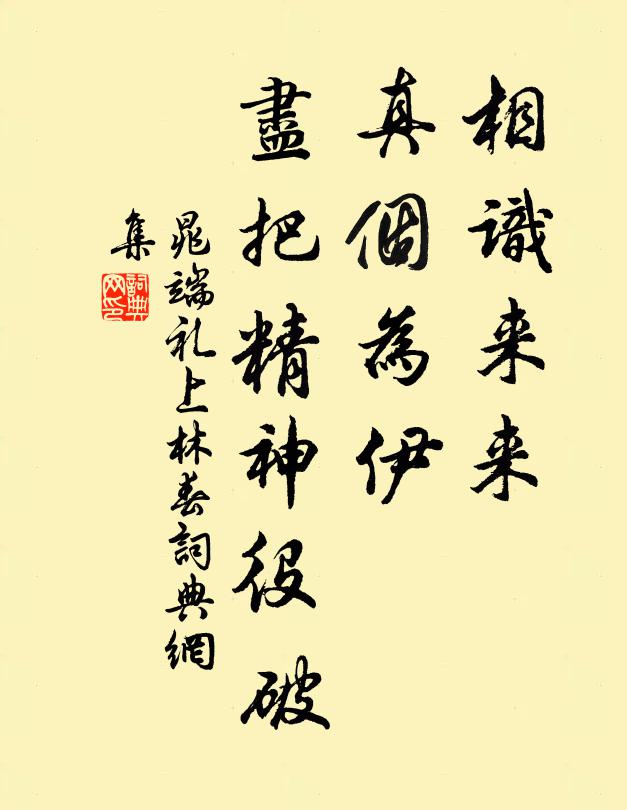 相識来来
真個為伊
盡把精神役破
晁端礼上林春詞典網
集
詞典
网印